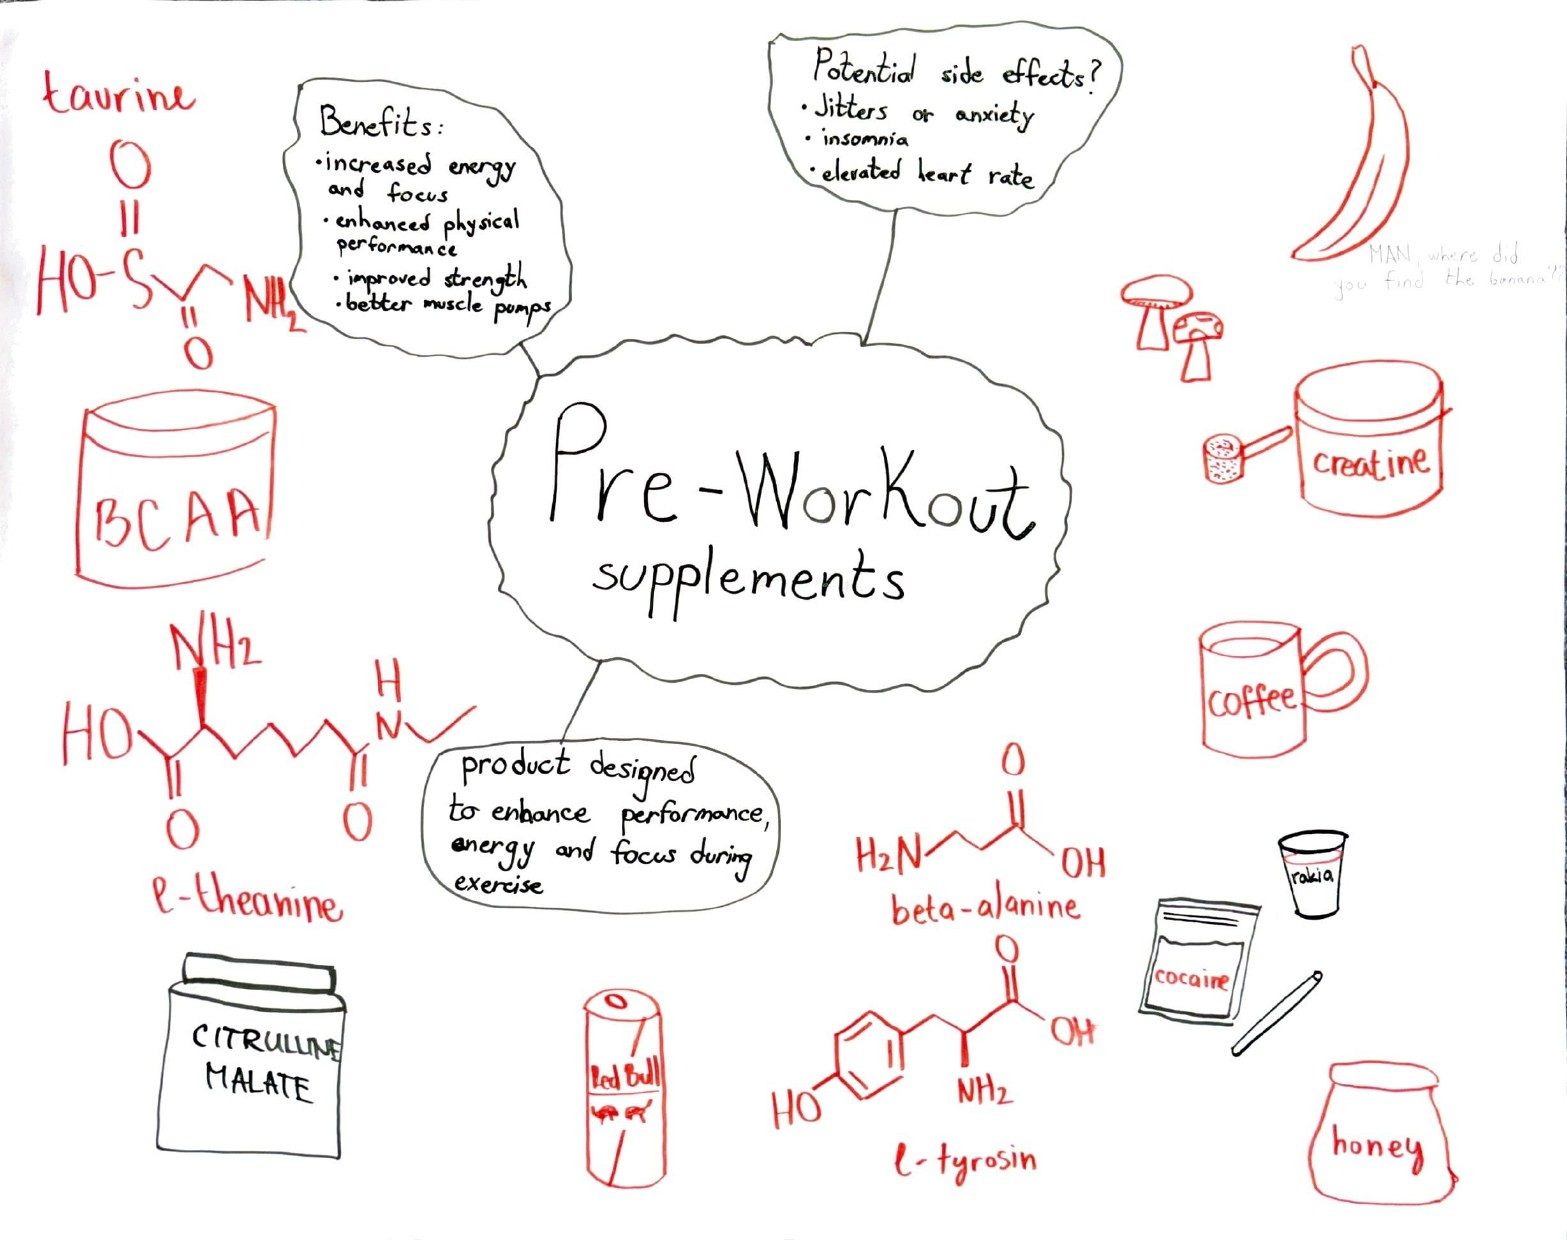 Pre-Workout
supplements
Benefits:
•increased energy
and focus
•enhanced physical
performance
•improved strength
•better muscle pumps
Potential side effects?
•Jitters or anxiety
•insomnia
•elevated heart rate
product designed
to enhance performance,
energy and focus during
exercise
taurine
O
HO-S
NH2
O
BCAA
NH2
H
HO
N
O
O
l-theanine
CITRULLINE
MALATE
Red Bull
O
H2N
OH
beta-alanine
O
OH
NH2
HO
l-tyrosin
MAN, where did
you find the banana??
creatine
coffee
rakia
cocaine
honey